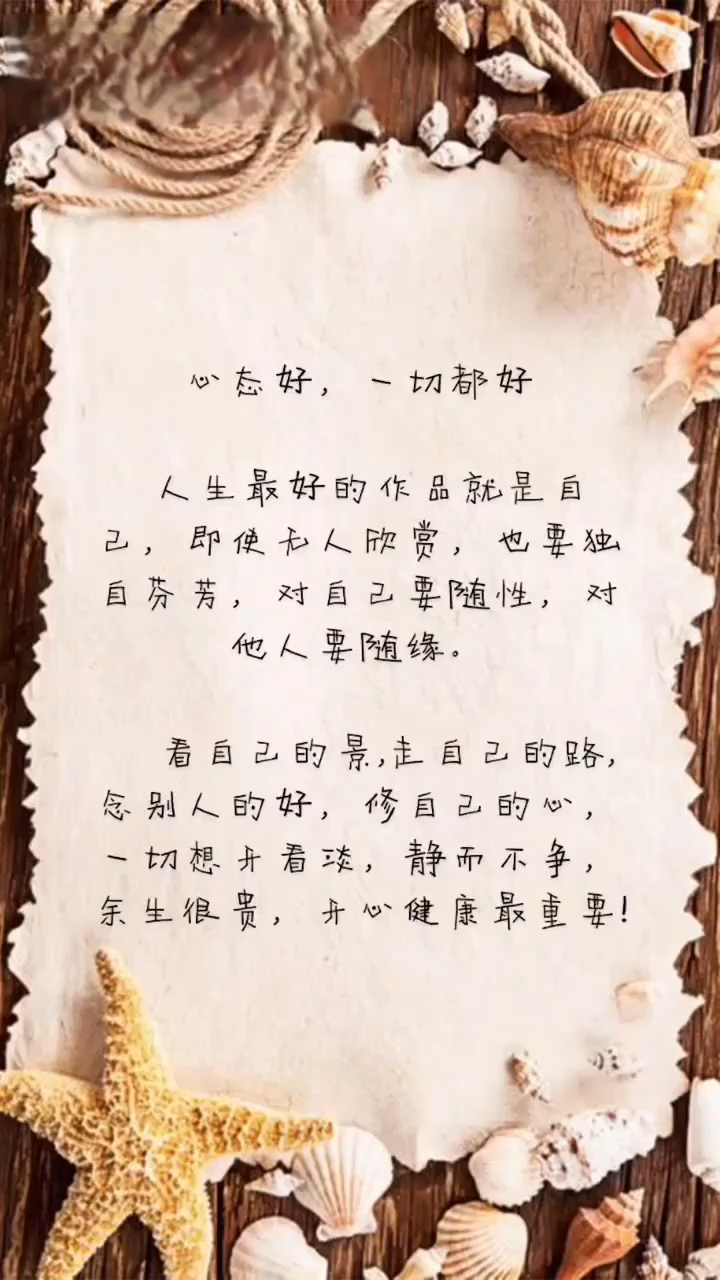 心态好，一切都好
人生最好的作品就是自
己，即使无人欣赏，也要独
自芬芳，对自己要随性，对
他人要随缘。
看自己的景,走自己的路,
念别人的好，修自己的心，
一切想开看淡，静而不争，
余生很贵，开心健康最重要!